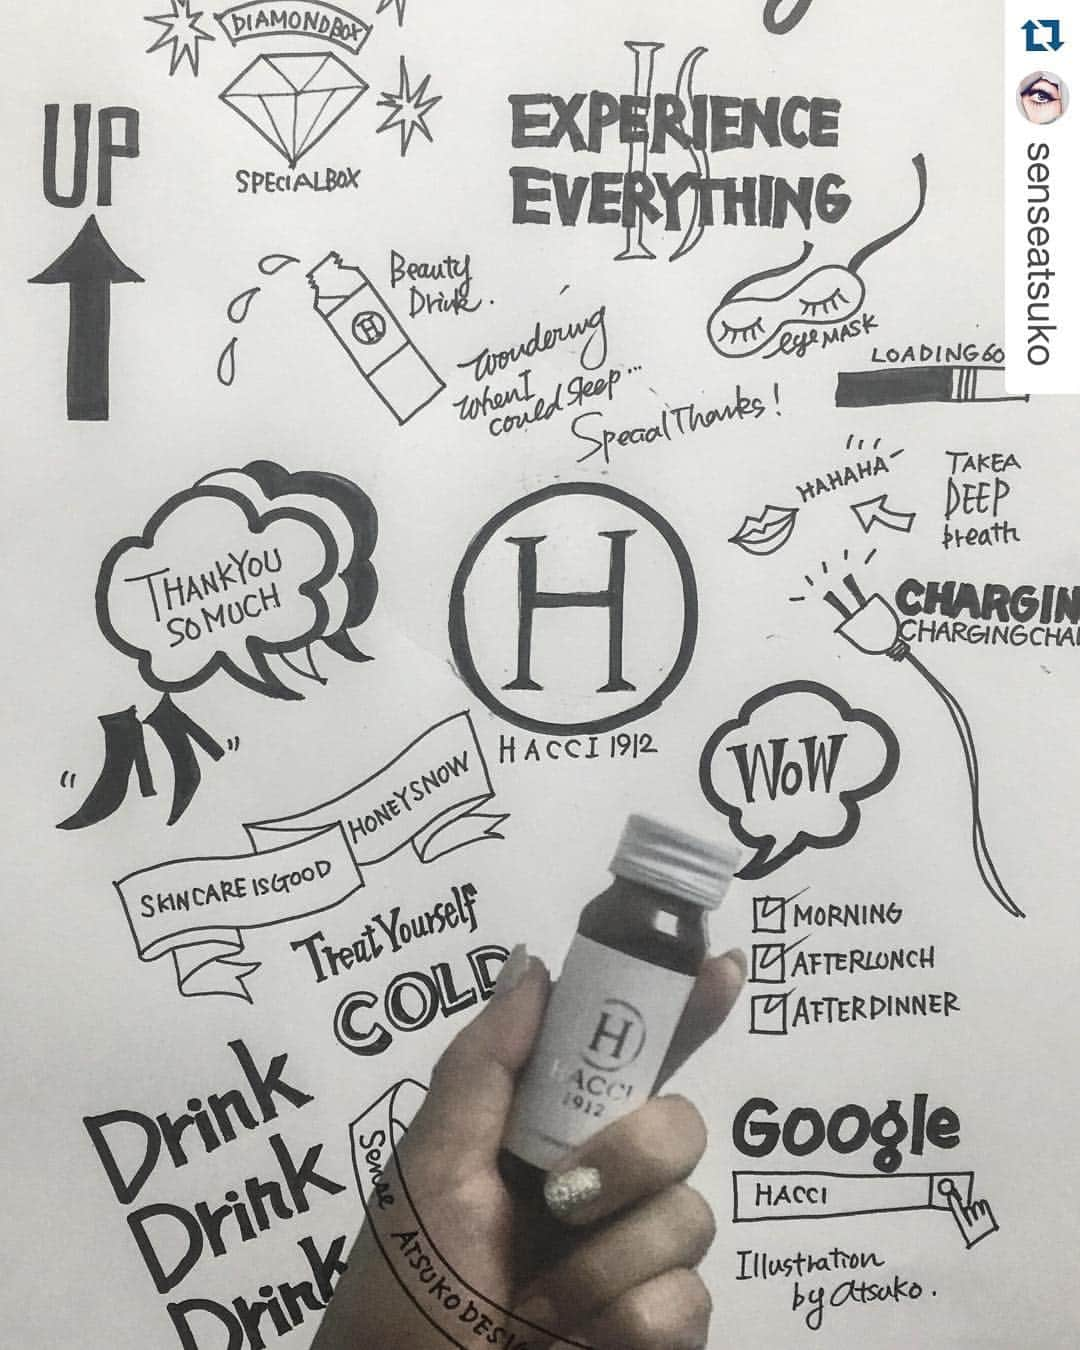 DIAMONDBOX
SPECIALBOX
UP
IS
EXPERIENCE
EVERYTHING
senseatsuko
Beauty
Drink.
H
Wondering
When I
could sleep...
Special Thanks!
eye MASK
LOADING 60
HAHAHA
TAKE A
DEEP
breath
THANK YOU
SO MUCH
H
HACCI 1912
CHARGIN
CHARGINGCHA
WoW
SKINCARE IS GOOD
HONEYSNOW
Treat Yourself
COLD
MORNING
AFTERLUNCH
AFTERDINNER
H
HACCI
1912
Drink
Drink
Drink
Sense ATSUKO DESI
Google
HACCI
Illustration
by atsuko.